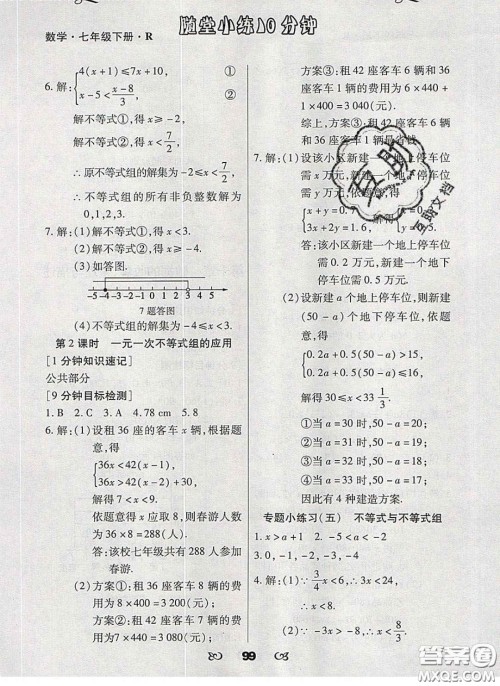 数学·七年级下册·R
随堂小练10分钟
6.解:{4(x+1)≤7x+10, ①
x-5<(x-8)/3, ②
解不等式①,得x≥-2,
解不等式②,得x<7/2,
∴原不等式组的解集为-2≤x<7/2,
∴不等式组的所有非负整数解为
0,1,2,3.
7.解:(1)解不等式①,得x<3.
(2)解不等式②,得x≥-4.
(3)如答图.
-5 -4 -3 -2 -1 0 1 2 3 4 5
7题答图
(4)不等式组的解集为-4≤x<3.
第2课时 一元一次不等式组的应用
[1分钟知识速记]
公共部分
[9分钟目标检测]
1.B 2.C 3.A 4.78cm 5.8
6.解:(1)设租36座的客车x辆,根据题
意,得
{36x<42(x-1),
36x>42(x-2)+30,
解得7<x<9.
依题意得x应取8,则春游人数
为36×8=288(人).
答:该校七年级共有288人参加
春游.
(2)方案①:租36座客车8辆的费
用为8×400=3200(元);
方案②:租42座客车7辆的费
用为7×440=3080(元);
方案③:租42座客车6辆和36
座客车1辆的费用为6×440+
1×400=3040(元).
综上,方案③:租42座客车6辆
和36座客车1辆最省钱.
7.解:(1)设该小区新建一个地上停车位
需x万元,新建一个地下停车位
需y万元,
{x+y=0.7,
3x+2y=1.6,
答:该小区新建一个地上停车位
需0.2万元,新建一个地下停车
位需0.5万元.
(2)设新建a个地上停车位,则新建
(50-a)个地下停车位,依题意,
得
{0.2a+0.5(50-a)>15,
0.2a+0.5(50-a)≤16,
解得30≤x<33 1/3.
①当a=30时,50-a=20;
②当a=31时,50-a=19;
③当a=32时,50-a=18;
④当a=33时,50-a=17;
因此有4种建造方案.
专题小练习(五) 不等式与不等式组
1.x>a+1 2.-5<a<-2
3.0,-1,-2,-3,-4
4.解:(1)∵3/4x<6,∴3x<24,
∴x<8.
(2)∵-3x>-8,∴x<8/3.
99
互助
互助文档
答案圈
MXQE.COM